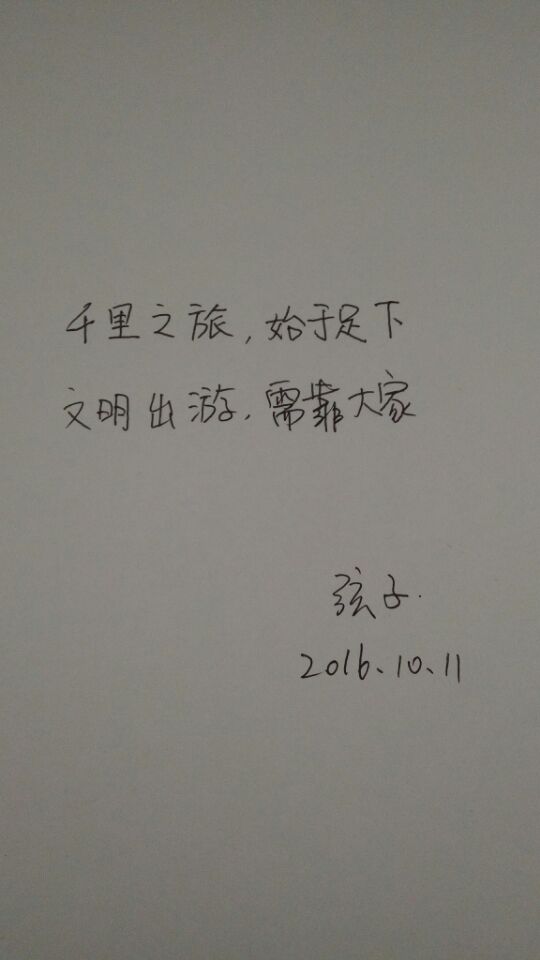 千里之旅,始于足下
文明出游,需靠大家
弦子.
2016、10、11